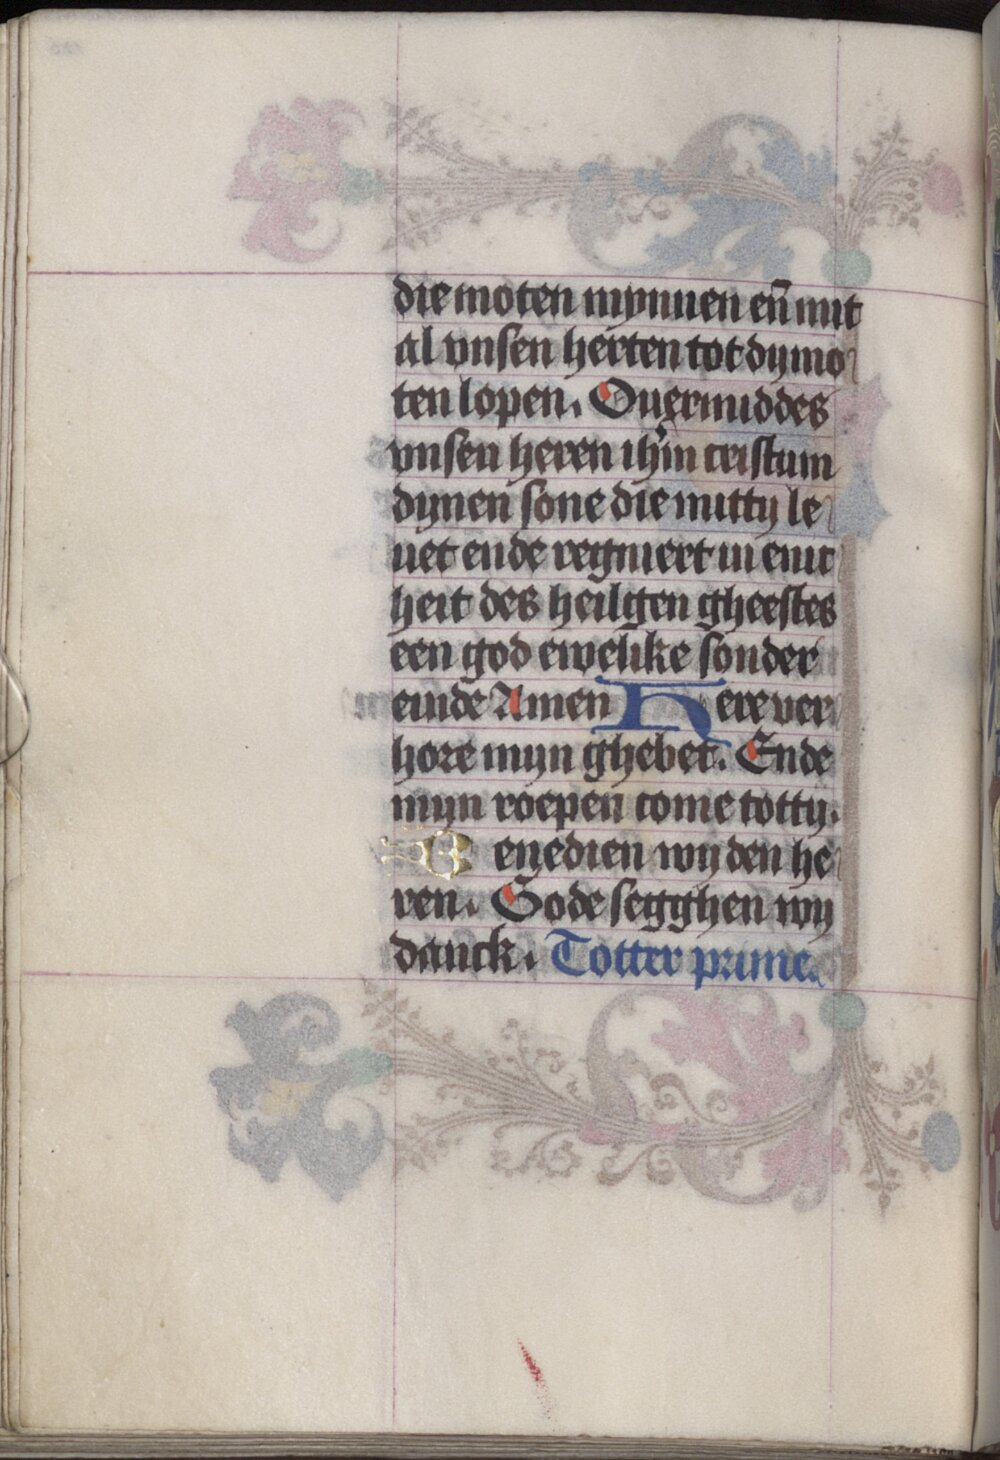 die moten mynnen en̄ mit
al vnsen herten tot dy mo
ten lopen. Ouermiddes
vnsen heren ih̄m cristum
dynen sone die mitty le
uet ende regniert in enic
heit des heilgen gheestes
een god ewelike sonder
einde Amen Here ver
hore myn ghebet. Ende
myn roepen come totty.
Benedien wy den he
ren. Gode segghen wy
danck. Totter prime.